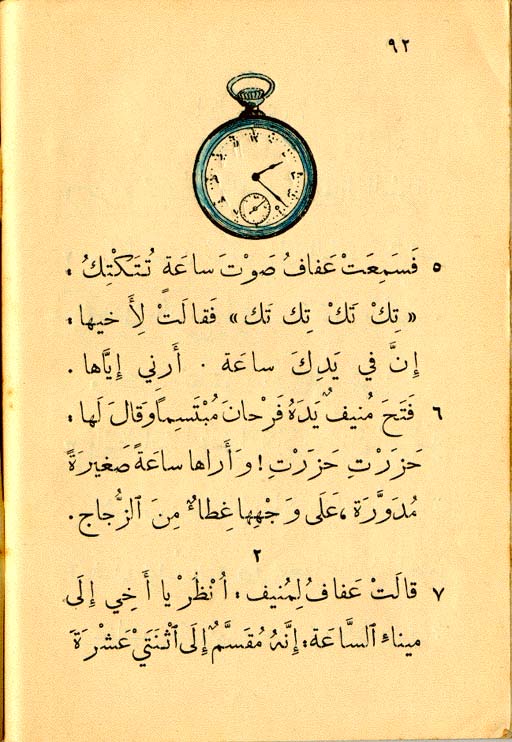 ٩٢
٥ فَسَمِعَتْ عَفافُ صَوْتَ ساعَةٍ تُتَكْتِكُ :
« تِكْ تَكْ تِك تَك » فَقالَتْ لِأَخيها :
إِنَّ في يَدِكَ ساعَة . أَرني إِيَّاها .
٦ فَتَحَ مُنيفٌ يَدَهُ فَرْحانَ مُبْتَسِماً وَقالَ لَها :
حَزَرْتِ حَزَرْتِ ! وَأَراها ساعَةً صَغيرَةً
مُدَوَّرَة ، عَلَى وَجْهِها غِطاءٌ مِنَ ٱلزُّجاج .
٢
٧ قالَتْ عَفافُ لِمُنيف : اُنْظُرْ يا أَخِي إِلَى
ميناءِ ٱلسَّاعَة : إِنَّهُ مُقَسَّمٌ إِلَى ٱثْنَتَيْ عَشْرَةَ